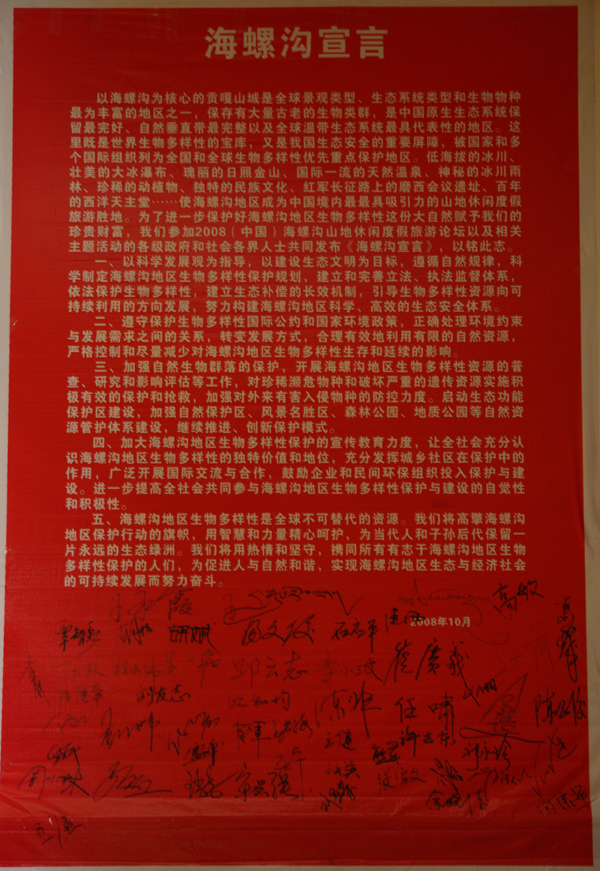 海螺沟宣言
以海螺沟为核心的贡嘎山域是全球景观类型、生态系统类型和生物物种
最为丰富的地区之一，保存有大量古老的生物类群，是中国原生生态系统保
留最完好、自然垂直带最完整以及全球温带生态系统最具代表性的地区。这
里既是世界生物多样性的宝库，又是我国生态安全的重要屏障，被国家和多
个国际组织列为全国和全球生物多样性优先重点保护地区。低海拔的冰川、
壮美的大冰瀑布、瑰丽的日照金山、国际一流的天然温泉、神秘的冰川雨
林、珍稀的动植物、独特的民族文化、红军长征路上的磨西会议遗址、百年
的西洋天主堂……使海螺沟地区成为中国境内最具吸引力的山地休闲度假
旅游胜地。为了进一步保护好海螺沟地区生物多样性这份大自然赋予我们的
珍贵财富，我们参加2008（中国）海螺沟山地休闲度假旅游论坛以及相关
主题活动的各级政府和社会各界人士共同发布《海螺沟宣言》，以铭此志。
一、以科学发展观为指导，以建设生态文明为目标，遵循自然规律，科
学制定海螺沟地区生物多样性保护规划，建立和完善立法、执法监督体系，
依法保护生物多样性，建立生态补偿的长效机制，引导生物多样性资源向可
持续利用的方向发展，努力构建海螺沟地区科学、高效的生态安全体系。
二、遵守保护生物多样性国际公约和国家环境政策，正确处理环境约束
与发展需求之间的关系，转变发展方式，合理有效地利用有限的自然资源，
严格控制和尽量减少对海螺沟地区生物多样性生存和延续的影响。
三、加强自然生物群落的保护，开展海螺沟地区生物多样性资源的普
查、研究和影响评估等工作，对珍稀濒危物种和破坏严重的遗传资源实施积
极有效的保护和抢救，加强对外来有害入侵物种的防控力度。启动生态功能
保护区建设，加强自然保护区、风景名胜区、森林公园、地质公园等自然资
源管护体系建设，继续推进、创新保护模式。
四、加大海螺沟地区生物多样性保护的宣传教育力度，让全社会充分认
识海螺沟地区生物多样性的独特价值和地位，充分发挥城乡社区在保护中的
作用，广泛开展国际交流与合作，鼓励企业和民间环保组织投入保护与建
设。进一步提高全社会共同参与海螺沟地区生物多样性保护与建设的自觉性
和积极性。
五、海螺沟地区生物多样性是全球不可替代的资源。我们将高擎海螺沟
地区保护行动的旗帜，用智慧和力量精心呵护，为当代人和子孙后代保留一
片永远的生态绿洲。我们将用热情和坚守，携同所有有志于海螺沟地区生物
多样性保护的人们，为促进人与自然和谐，实现海螺沟地区生态与经济社会
的可持续发展而努力奋斗。
高敏
2008年10月
邱云志
刘友志
任啸